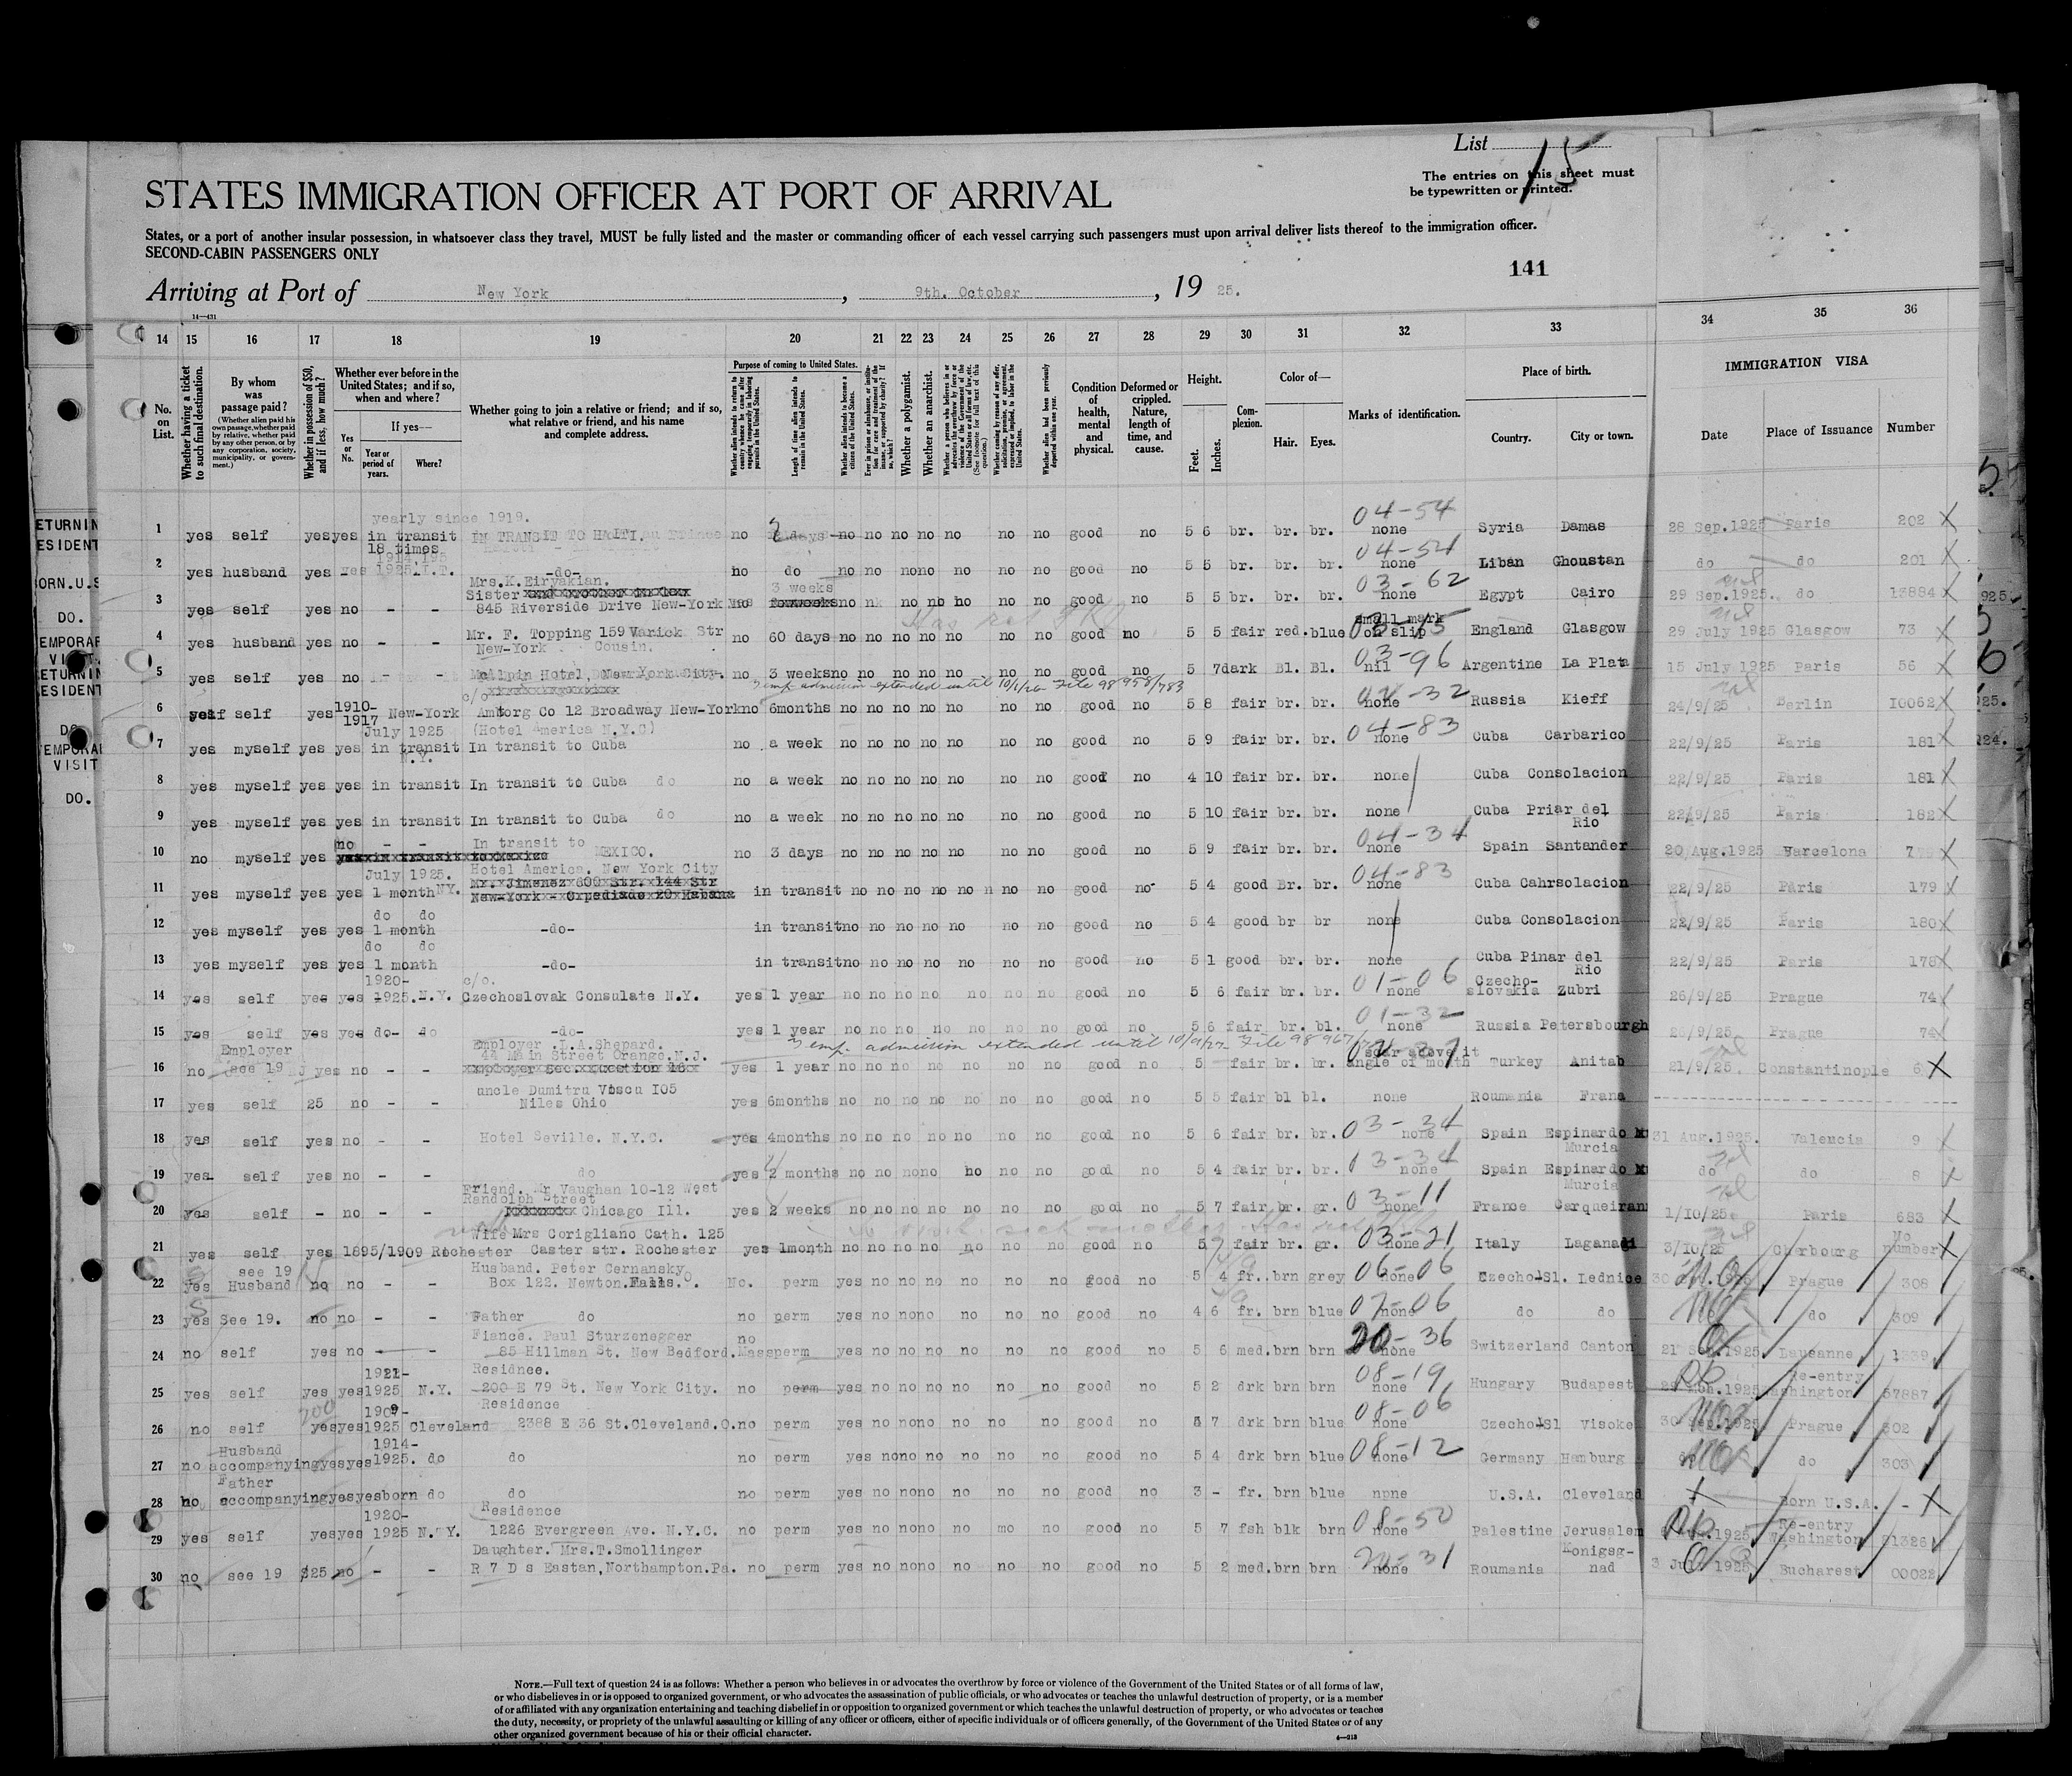 List 15
The entries on this sheet must
be typewritten or printed.
STATES IMMIGRATION OFFICER AT PORT OF ARRIVAL
States, or a port of another insular possession, in whatsoever class they travel, MUST be fully listed and the master or commanding officer of each vessel carrying such passengers must upon arrival deliver lists thereof to the immigration officer.
SECOND-CABIN PASSENGERS ONLY
141
Arriving at Port of New York, 9th. October, 19 25.
14 15 16 17 18 19 20 21 22 23 24 25 26 27 28 29 30 31 32 33 34 35 36
No. on List.
Whether having a ticket to such final destination.
By whom was passage paid?
(Whether alien paid his own passage, whether paid by relative, whether paid by any other person, or by any corporation, society, municipality, or government.)
Whether in possession of $50, and if less, how much?
Whether ever before in the United States; and if so, when and where?
Yes or No.
If yes—
Year or period of years.
Where?
Whether going to join a relative or friend; and if so, what relative or friend, and his name and complete address.
Purpose of coming to United States.
Whether alien intends to return to country whence he came after engaging temporarily in laboring pursuits in the United States.
Length of time alien intends to remain in the United States.
Whether alien intends to become a citizen of the United States.
Whether a polygamist.
Whether an anarchist.
Whether alien had been previously deported within one year.
Condition of health, mental and physical.
Deformed or crippled. Nature, length of time, and cause.
Height.
Feet. Inches.
Complexion.
Color of—
Hair. Eyes.
Marks of identification.
Place of birth.
Country. City or town.
IMMIGRATION VISA
Date Place of Issuance Number
yearly since 1919.
1 yes self yes yes in transit IN TRANSIT TO HAITI. no days no no no no no no no good no 5 6 br. br. br. 04-54 none Syria Damas 28 Sep.1925 Paris 202 X
18 times
2 yes husband yes yes 1925 -do- no do no no no no no no no good no 5 5 br. br. br. 04-54 none Liban Ghoustan do do 201 X
Mrs.K.Eiryakian.
Sister 3 weeks
3 yes self yes no - - 845 Riverside Drive New-York no no no no no no good no 5 5 br. br. br. 03-62 none Egypt Cairo 29 Sep.1925. do 13884 X
4 yes husband yes no - - Mr. F. Topping 159 Varick Str no 60 days no no no no no no no good no 5 5 fair red. blue small mark on slip England Glasgow 29 July 1925 Glasgow 73 X
New-York Cousin.
5 yes self yes no - - McAlpin Hotel, New York City. no 3 weeks no no no no no no no good no 5 7 dark Bl. Bl. 03-96 nil Argentine La Plata 15 July 1925 Paris 56 X
Temp admission extended until 10/1/26 File 98958/783
c/o
6 self yes 1910-1917 New-York Amtorg Co 12 Broadway New-York no 6months no no no no no no no good no 5 8 fair br. br. 02-32 none Russia Kieff 24/9/25 Berlin 10062 X
July 1925 (Hotel America N.Y.C)
7 yes myself yes yes in transit N.Y. In transit to Cuba no a week no no no no no no no good no 5 9 fair br. br. 04-83 none Cuba Carbarico 22/9/25 Paris 181 X
8 yes myself yes yes in transit In transit to Cuba do no a week no no no no no no no good no 4 10 fair br. br. none Cuba Consolacion 22/9/25 Paris 181 X
9 yes myself yes yes in transit In transit to Cuba do no a week no no no no no no no good no 5 10 fair br. br. none Cuba Priar del Rio 22/9/25 Paris 182 X
10 no myself yes no - - In transit to MEXICO. no 3 days no no no no no no no good no 5 9 fair br. br. 04-34 none Spain Santander 20 Aug.1925 Barcelona X
July 1925. Hotel America. New York City
11 yes myself yes yes 1 month NY. Mr. Jimenez 600 Str. 144 Str New-York in transit no no no no no no no no good no 5 4 good Br. br. 04-83 none Cuba Cahrsolacion 22/9/25 Paris 179 X
do do
12 yes myself yes yes 1 month -do- in transit no no no no no no no good no 5 4 good br br none Cuba Consolacion 22/9/25 Paris 180 X
do do
13 yes myself yes yes 1 month -do- in transit no no no no no no no good no 5 1 good br. br. none Cuba Pinar del Rio 22/9/25 Paris 178 X
1920- c/o.
14 yes self yes yes 1925. N.Y. Czechoslovak Consulate N.Y. yes 1 year no no no no no no no good no 5 6 fair br. br. 01-06 none Czecho-slovakia Zubri 26/9/25 Prague 74
15 yes self yes yes do- do -do- yes 1 year no no no no no no no good no 5 6 fair br. bl. 01-32 none Russia Petersbourgh 26/9/25 Prague 74
Temp. admission extended until File
Employer Employer .I.A.Shepard.
16 no see 19 yes no - - 44 Main Street Orange.N.J. yes 1 year no no no no no no no good no 5 - fair br. br. scar above it angle of mouth Turkey Anitab 21/9/25. Constantinople 6 X
uncle Dumitru
17 yes self 25 no - - Niles Ohio yes 6months no no no no no no no good no 5 5 fair bl bl. none Roumania
18 yes self yes no - - Hotel Seville. N.Y.C. yes 4months no no no no no no no good no 5 6 fair br. br. 03-34 none Spain Espinardo Murcia 31 Aug.1925. Valencia 9
19 yes self yes no - - do yes 2 months no no no no no no no good no 5 4 fair br. br. 03-34 none Spain Espinardo Murcia do do 8
Friend. Mr Vaughan 10-12 West
Randolph Street
20 yes self - no - - Chicago Ill. yes 2 weeks no no no no no no no good no 5 7 fair br. gr. 03-11 none France 1/10/25 Paris 683 X
Wife Mrs Corigliano Cath. 125
21 yes self yes 1895/1909 Rochester Caster str. Rochester yes 1month no no no no no no no good no 5 7 fair br. gr. 03-21 none Italy Laganadi 3/10/25 Cherbourg No number X
see 19 Husband. Peter Cernansky
22 yes Husband no no - - Box 122. Newton.Falls.O. No. perm yes no no no no no no good no 5 4 fr. brn grey 06-06 none Czecho-Sl. Lednice Prague 308
23 yes See 19. no no - - Father do no perm yes no no no no no no good no 4 6 fr. brn blue 07-06 none do do do 309
Fiance. Paul Sturzenegger
24 no self yes no - - 85 Hillman St. New Bedford.Mass no perm yes no no no no no no good no 5 6 med. brn brn 20-36 none Switzerland Canton 1925 Lausanne 1339
1921- Residnce.
25 yes self yes yes 1925 N.Y. 200 E 79 St. New York City. no perm yes no no no no no no good no 5 2 drk brn brn 08-19 none Hungary Budapest 1925 Re-entry Washington 57887
1909- Residence
26 no self yes yes 1925 Cleveland 2388 E 36 St.Cleveland.O. no perm yes no no no no no no good no 5 7 drk brn blue 08-06 none Czecho-Sl Visoke 30 Sep.1925 Prague 302
Husband 1914-
27 no accompanying yes yes 1925. do do no perm yes no no no no no no good no 5 4 drk brn blue 08-12 none Germany Hamburg do 303
Father
28 no accompanying yes yes born do do no perm yes no no no no no no good no 3 - fr. brn blue none U.S.A. Cleveland Born U.S.A. - X
1920- Residence
29 yes self yes yes 1925 N.Y. 1226 Evergreen Ave. N.Y.C. no perm yes no no no no mo no good no 5 7 fsh blk brn 08-50 none Palestine Jerusalem 1925 Re-entry Washington 91326
Daughter. Mrs.T.Smollinger
30 no see 19 $25 no - - R 7 D s Eastan,Northampton.Pa. no perm yes no no no no no no good no 5 2 med. brn brn 20-31 none Roumania Konigsg-nad 3 1925 Bucharest 00022
NOTE.—Full text of question 24 is as follows: Whether a person who believes in or advocates the overthrow by force or violence of the Government of the United States or of all forms of law,
or who disbelieves in or is opposed to organized government, or who advocates the assassination of public officials, or who advocates or teaches the unlawful destruction of property, or is a member
of or affiliated with any organization entertaining and teaching disbelief in or opposition to organized government or which teaches the unlawful destruction of property, or who advocates or teaches
the duty, necessity, or propriety of the unlawful assaulting or killing of any officer or officers, either of specific individuals or of officers generally, of the Government of the United States or of any
other organized government because of his or their official character.